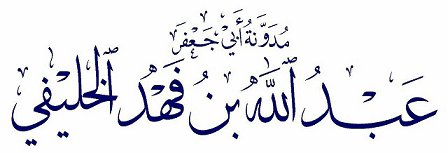 مُدَوَّنَةُ أَبِي جَعْفَر
عَبْدُ اللَّهِ بْنُ فَهْدٍ الخُلَيْفِي